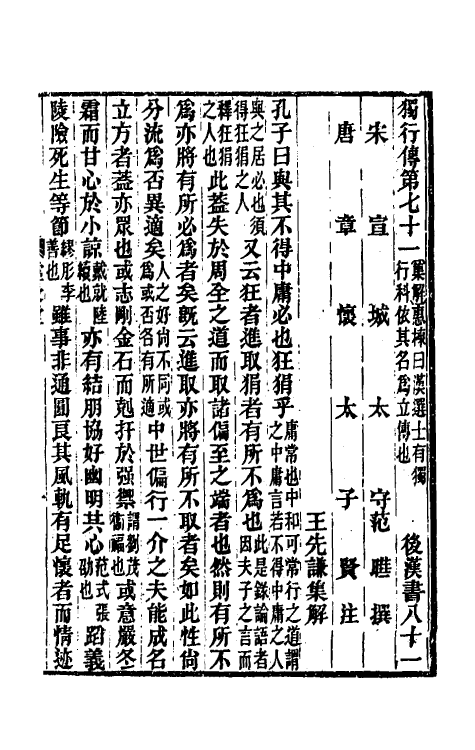 獨行傳第七十一 集解惠棟曰漢選士有獨行科依其名爲立傳也 後漢書八十一
宋宣城太守范曄撰
唐章懷太子賢注
王先謙集解
孔子曰與其不得中庸必也狂狷乎 庸常也中和可常行之道謂之中庸言若不得中庸之人與之居必也須得狂狷之人 又云狂者進取狷者有所不爲也 此是錄論語者因夫子之言而
釋狂狷之人也 此蓋失於周全之道而取諸偏至之端者也然則有所不
爲亦將有所必爲者矣旣云進取亦將有所不取者矣如此性尚
分流爲否異適矣 人之好尚不同或爲或否各有所適 中世偏行一介之夫能成名
立方者蓋亦眾也或志剛金石而剋扞於强禦 謂劉茂衞福也 或意嚴冬
霜而甘心於小諒 戴就陸續也 亦有結朋協好幽明共心 范式張劭也 蹈義
陵險死生等節 繆肜李善也 雖事非通圓良其風軌有足懷者而情迹